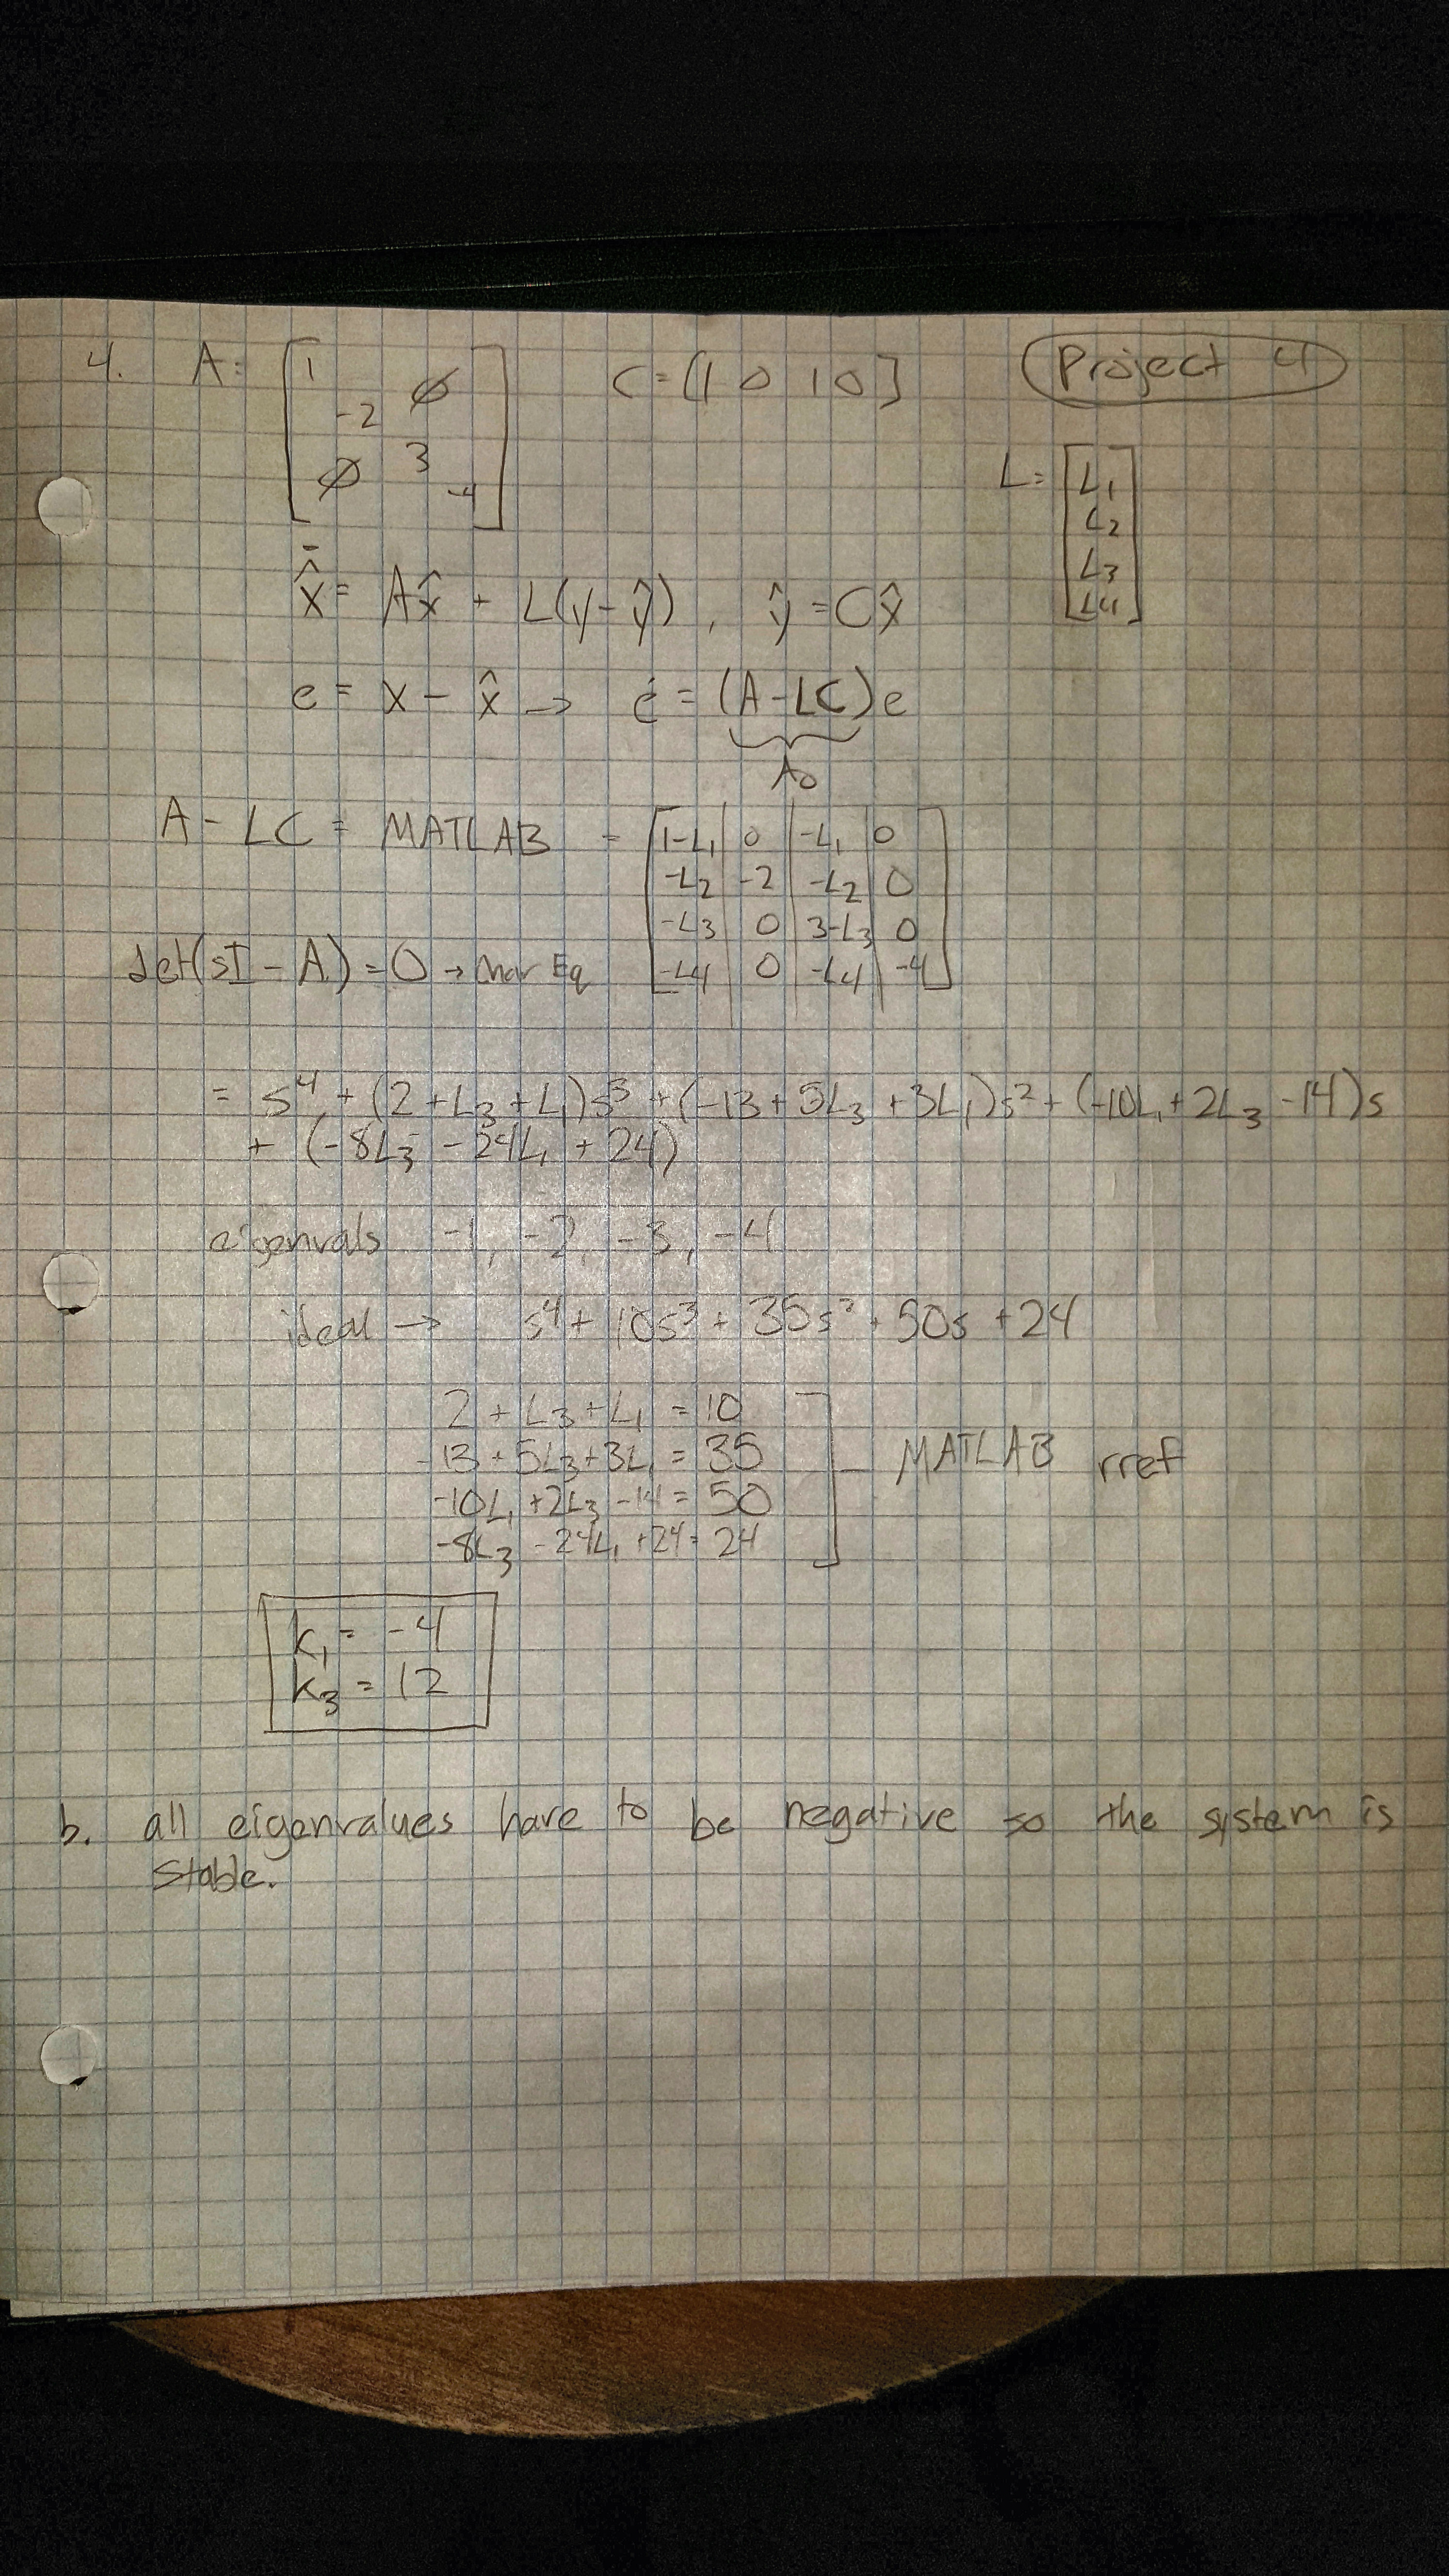 Project 4
4. A = [1 -2 ∅ ∅ 3 -4] C = [1 0 1 0] L = [L1 L2 L3 L4]
x̂̇ = Ax̂ + L(y-ŷ), ŷ = Cx̂
e = x - x̂ → ė = (A-LC)e
A0
A - LC = MATLAB = [1-L1 0 -L1 0
-L2 -2 -L2 0
-L3 0 3-L3 0
-L4 0 -L4 -4]
det(sI - A) = 0 → char Eq
= s⁴ + (2 + L3 + L1)s³ + (-13 + 5L3 + 3L1)s² + (-10L1 + 2L3 - 14)s
+ (-8L3 - 24L1 + 24)
eigenvals -1, -2, -3, -4
ideal → s⁴ + 10s³ + 35s² + 50s + 24
2 + L3 + L1 = 10
-13 + 5L3 + 3L1 = 35
-10L1 + 2L3 - 14 = 50
-8L3 - 24L1 + 24 = 24
] MATLAB rref
K1 = -4
K3 = 12
b. all eigenvalues have to be negative so the system is
stable.